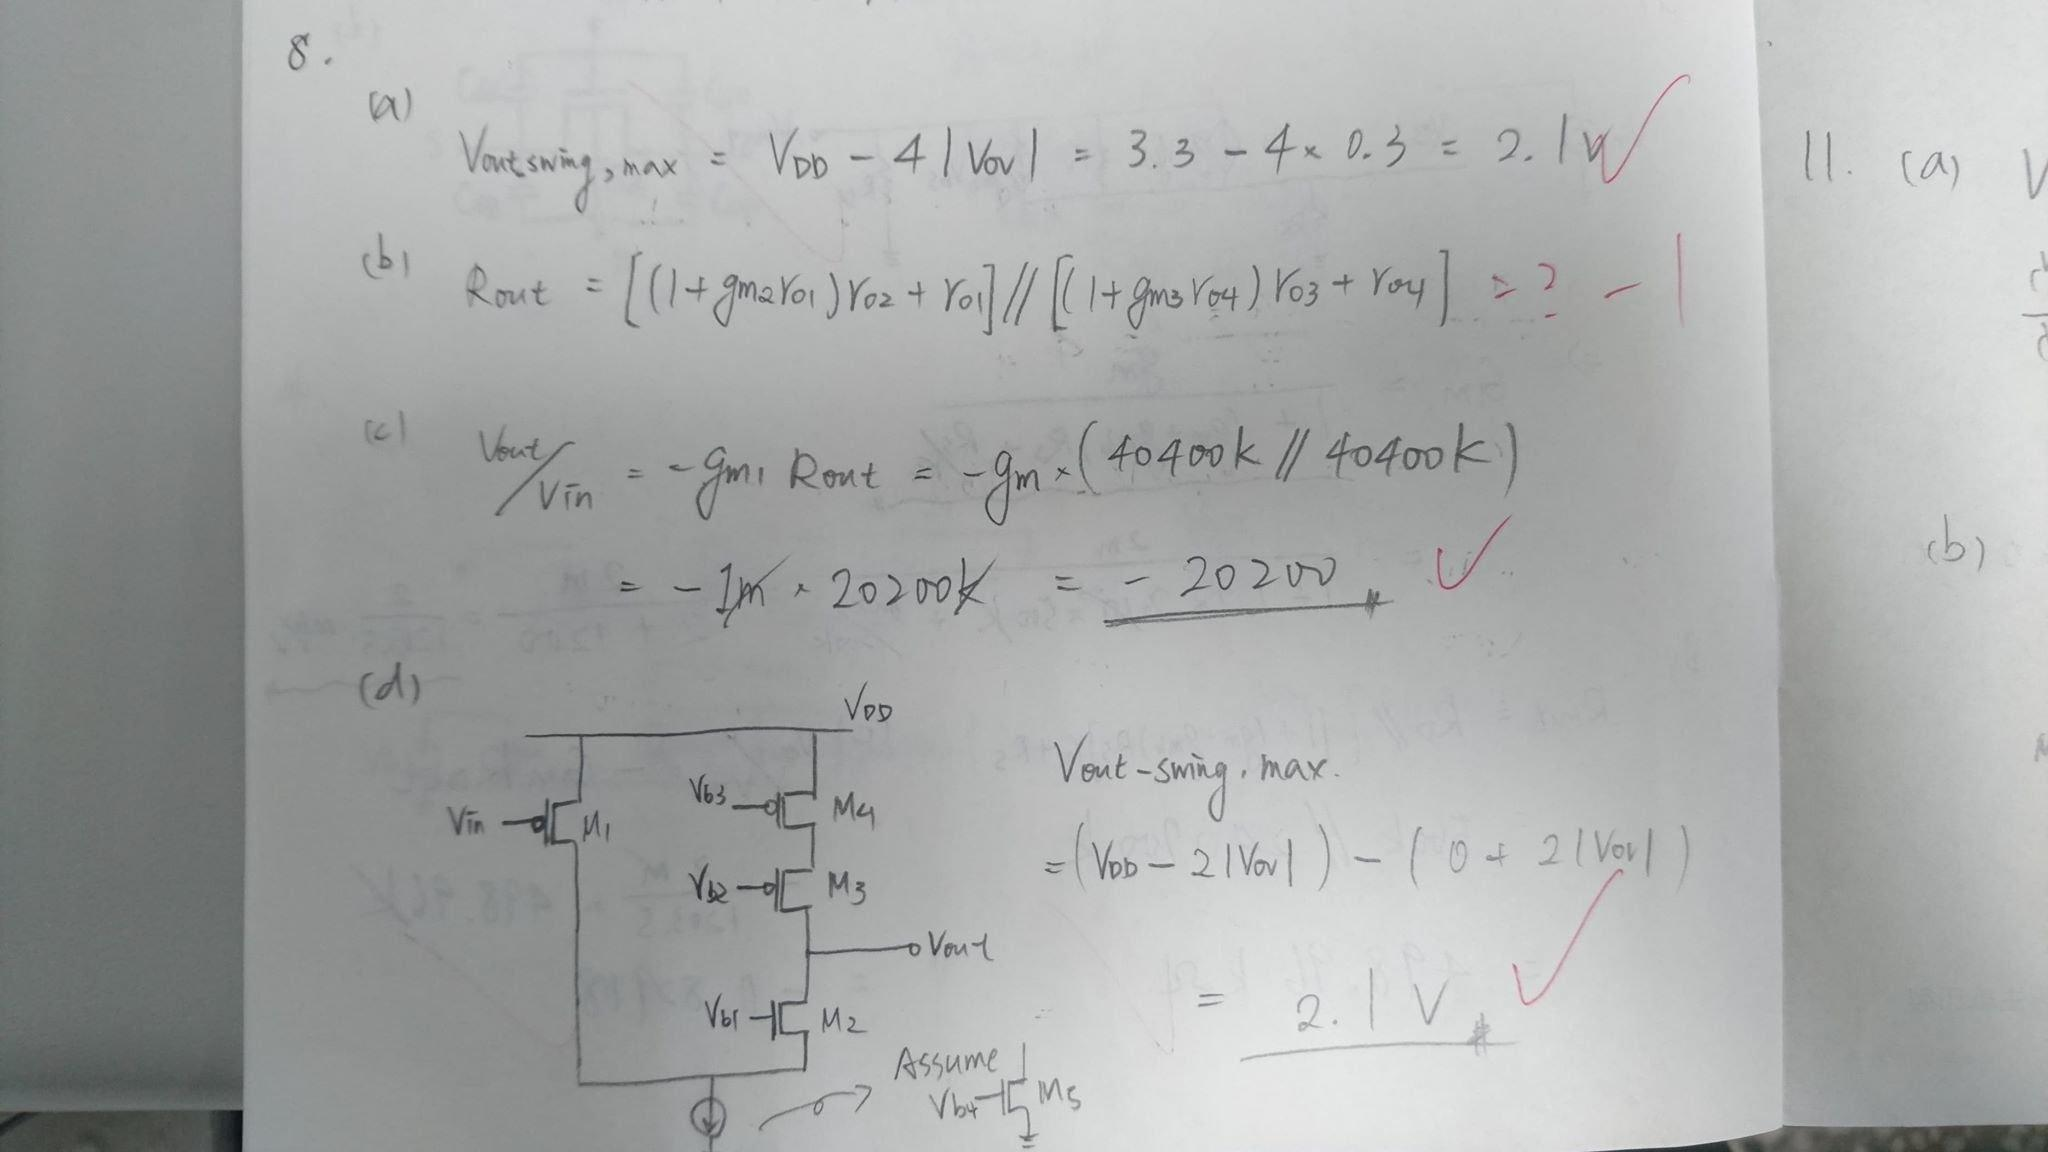 8.
(a)
Vout,swing,max = VDD - 4|Vov| = 3.3 - 4 × 0.3 = 2.1V
(b)
Rout = [(1+gm2ro1)ro2 + ro1] // [(1+gm3ro4)ro3 + ro4] = ? - 1
(c)
Vout/Vin = -gm1 Rout = -gm × (40400k // 40400k)
= -1m × 20200k = -20200
(d)
VDD
Vin M1
Vb3 M4
Vb2 M3
Vout
Vb1 M2
Assume
Vb4 M5
Vout-swing,max.
= (VDD - 2|Vov|) - (0 + 2|Vov|)
= 2.1V
11. (a) V
(b)